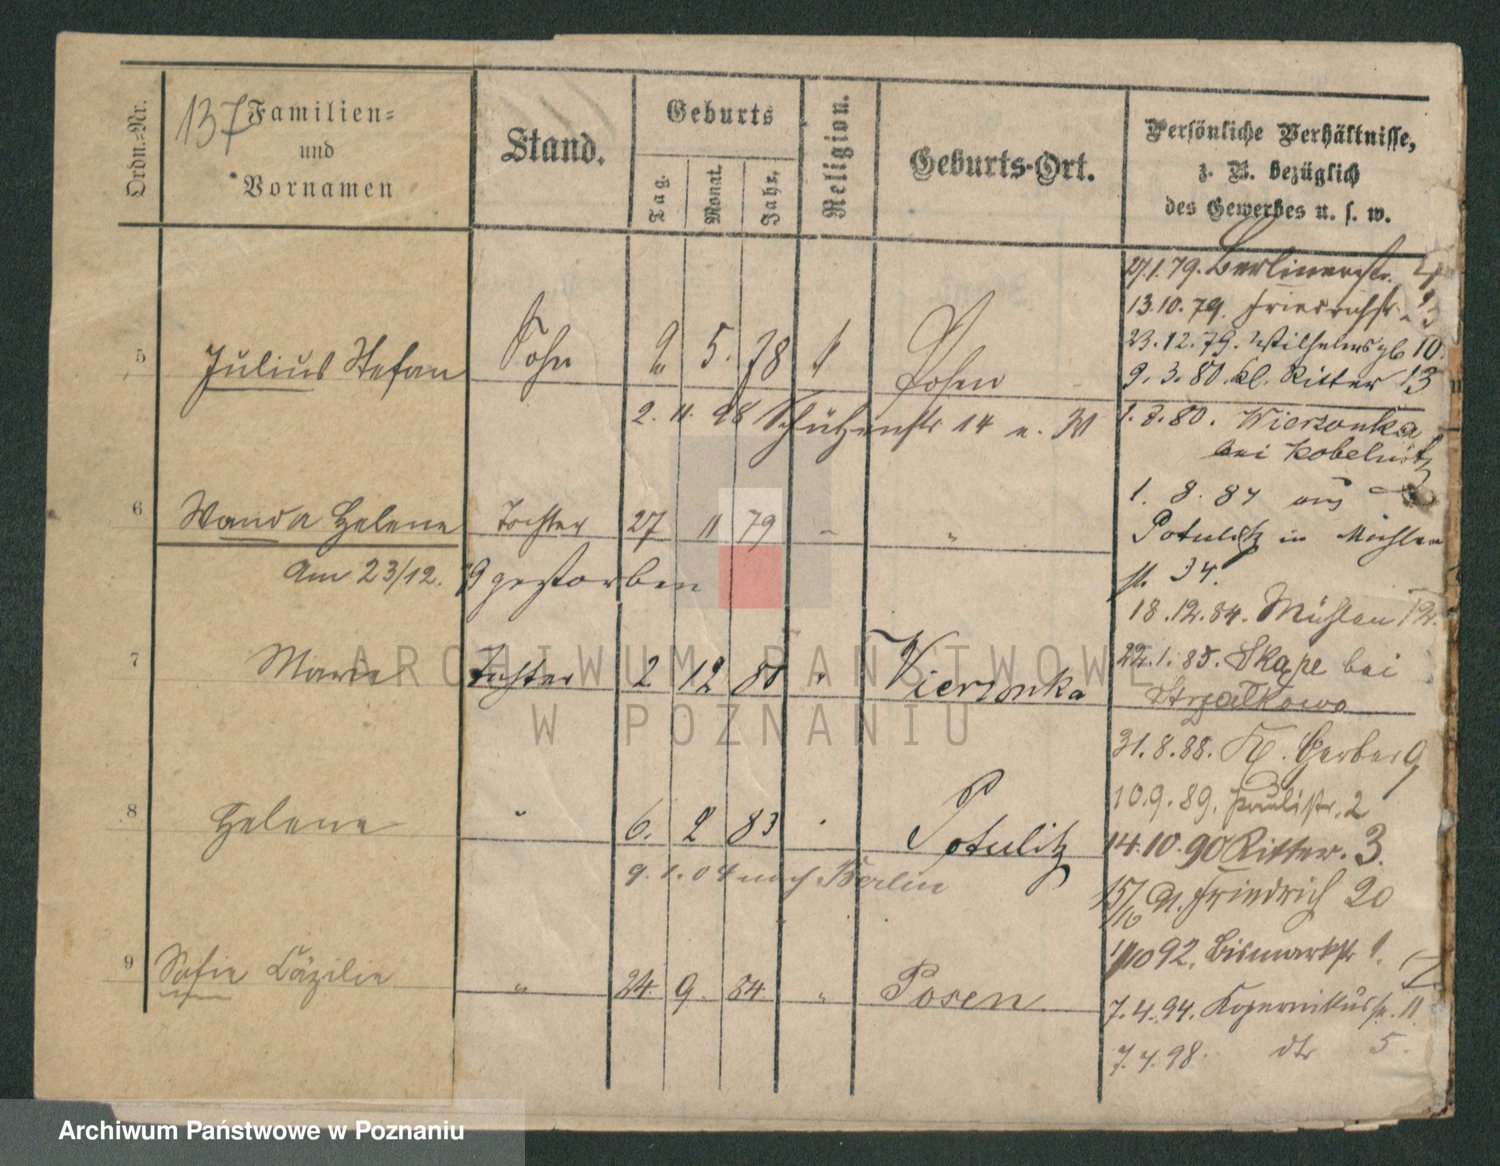 Ordn.-Nr.
137 Familien-
und
Vornamen
Stand.
Geburts
Tag. Monat. Jahr.
Religion.
Geburts-Ort.
Persönliche Verhältnisse,
z. B. bezüglich
des Gewerbes u. s. w.
27.1.79. Berlinerstr.
13.10.79. Friedrichstr.
23.12.79. Wilhelmsplb 10
9.3.80. kl. Ritter 13
5 Julius Stefan Sohn 2 5. 78 Posen
2. 11. 98 Schützenstr 14 u. 31
1.8.80. Wierzonka
bei Kobelnitz
1. 8. 84 aus
6 Wanda Helene Tochter 27 11 79 " "
Potulitz in Mühlen
st. 34.
Am 23/12. 79 gestorben
18.12.84. Mühlen 12.
7 Marie Tochter 2 12 80 " Wierzonka
22.1.85. Skape bei
Strzalkowo
31.8.88. Kl. Gerber 9
10.9.89. Paulistr. 2
8 Helene " 6. 2 83 " Potulitz
14.10.90 Ritter. 3.
9.1.04 nach Berlin
15/10 91. Friedrich 20
1/10 92. Bismarckstr 1.
9 Sofie Cäzilie " 24. 9. 84. " Posen
7.4.94. Kopernikusstr. 11
7.4.98. dto 5.
ARCHIWUM PAŃSTWOWE
W POZNANIU
Archiwum Państwowe w Poznaniu